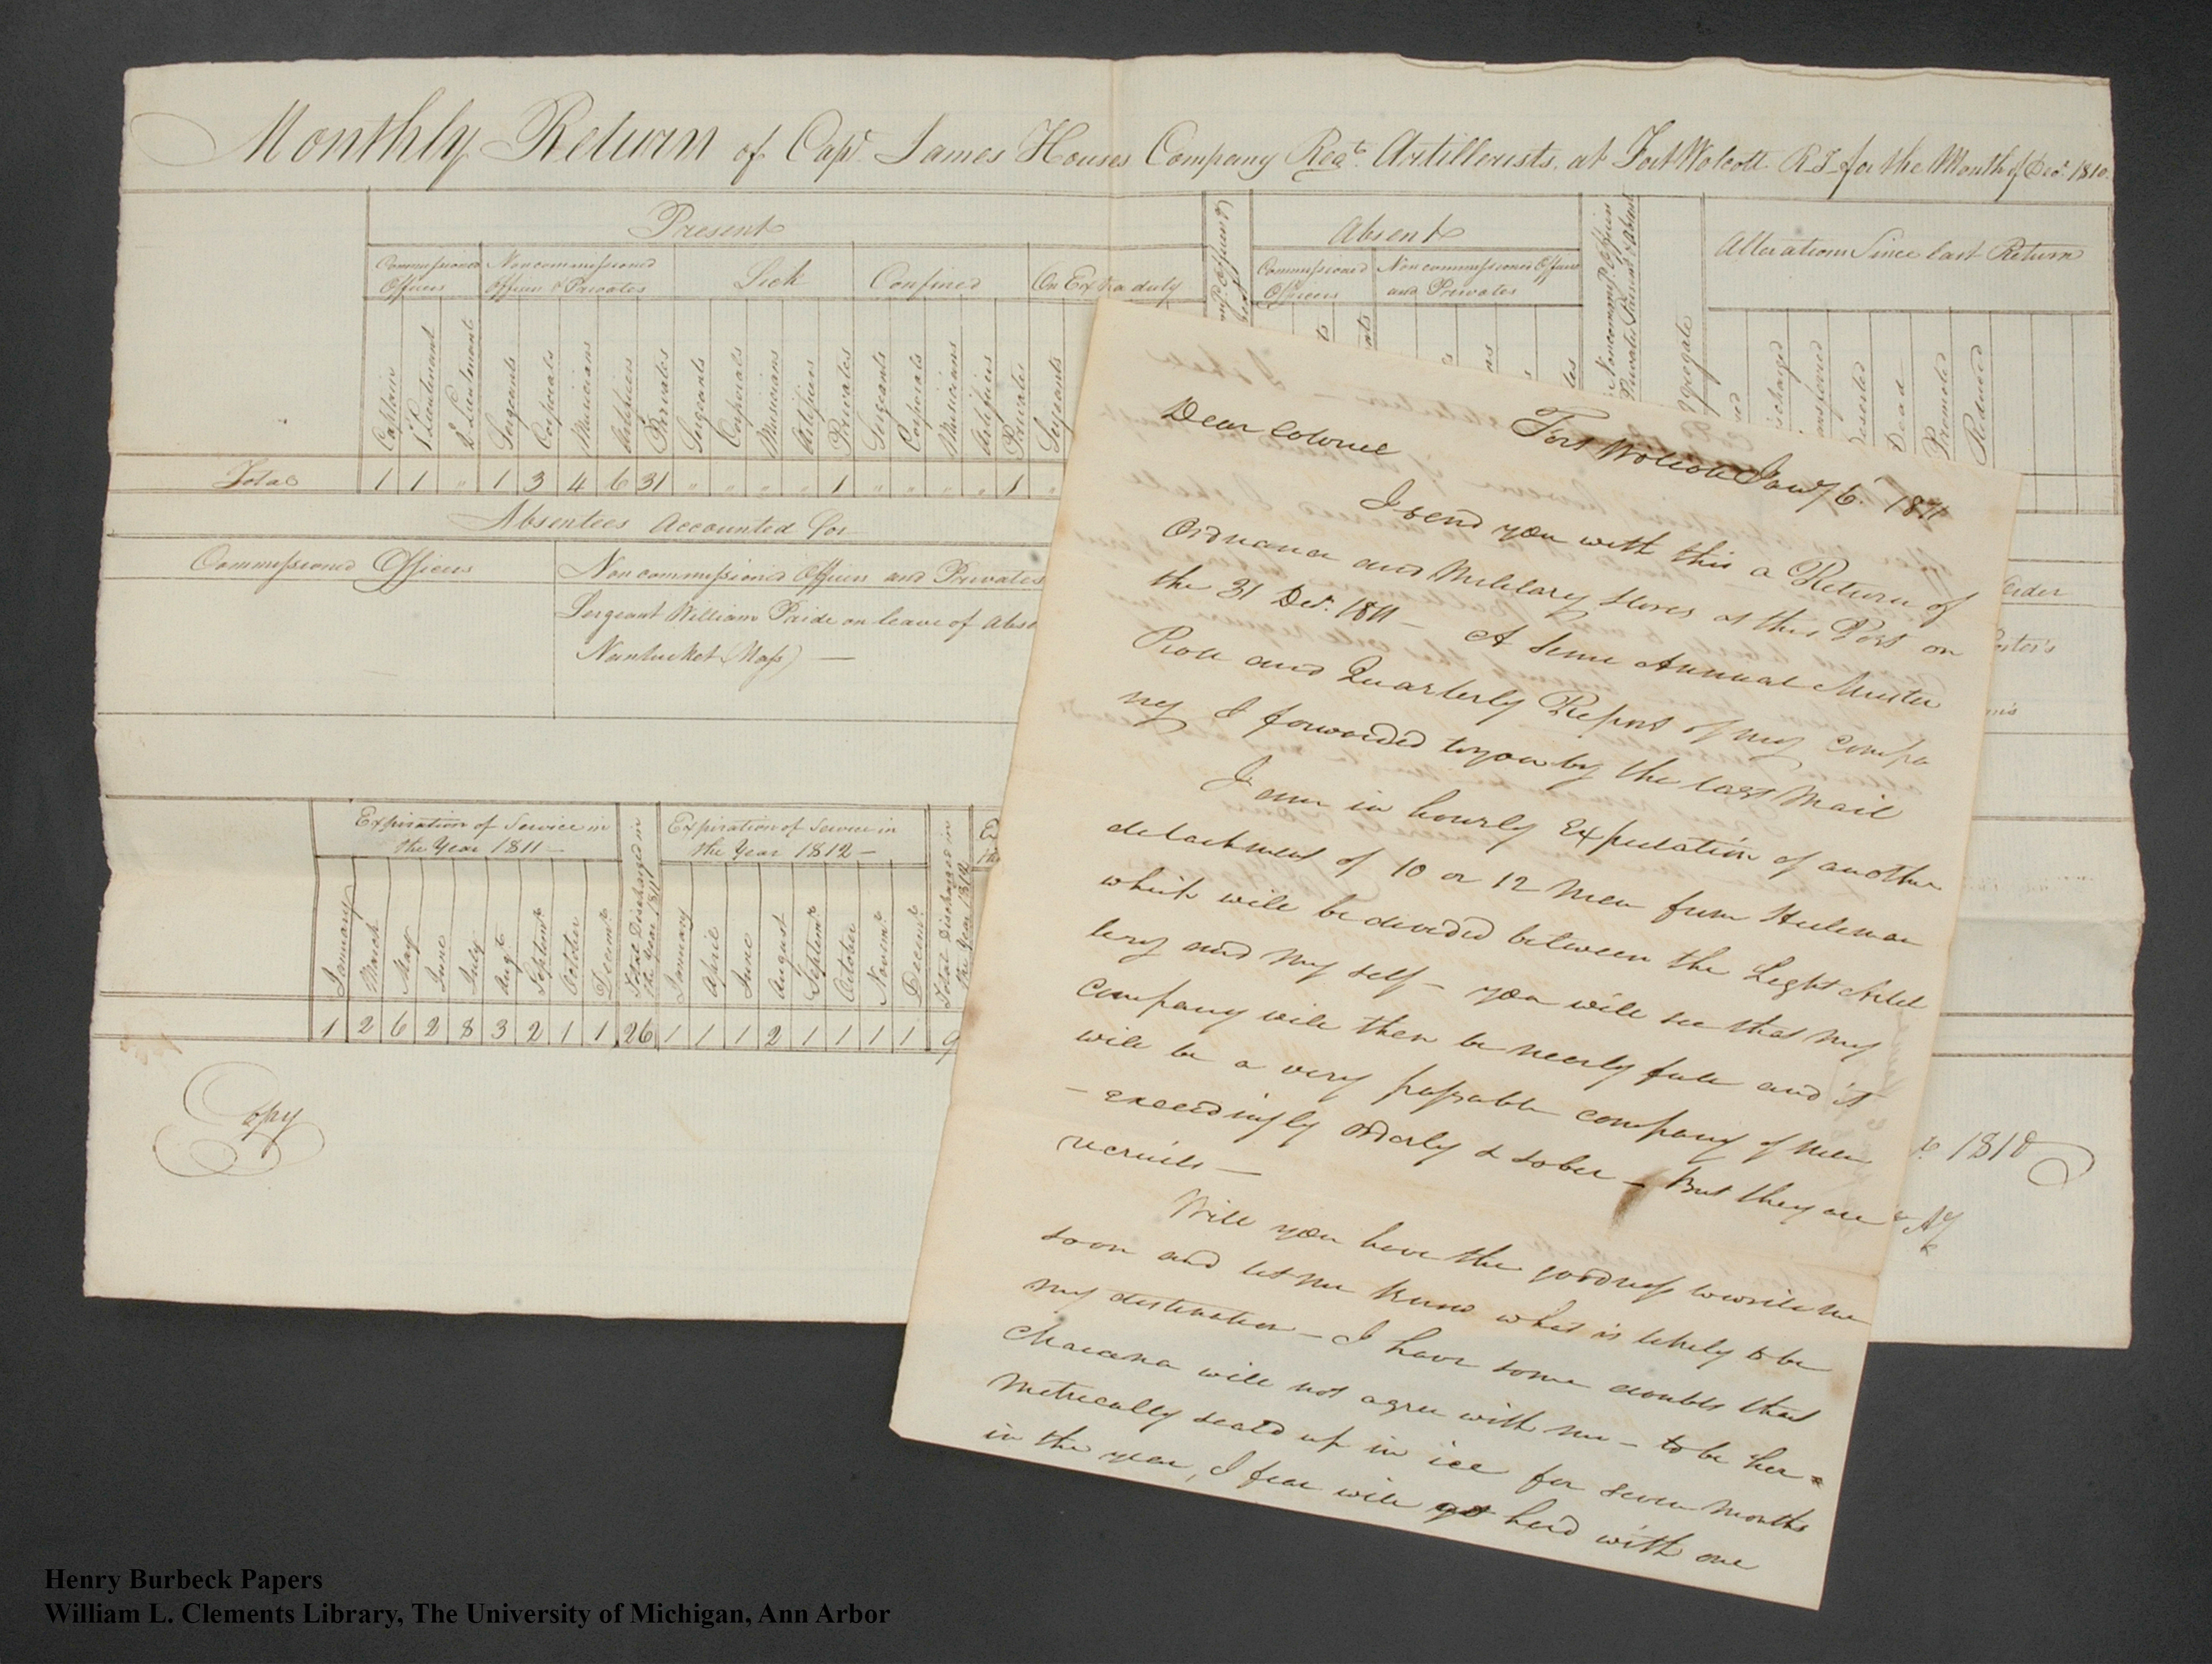 Monthly Return of Capt. James Houses Company Regt. Artillerists. at Fort Wolcott R.I. for the Month of Decr. 1810.
Present
Absent
Alterations Since last Return
Commissioned Officers
Noncommissioned Officers & Privates
Sick
Confined
On Extra duty
Commissioned Officers
Noncommissioned Officers and Privates
Noncommissd. Officers Privates Present & Absent
Captain
1st Lieutenant
2d Lieutenant
Sergeants
Corporals
Musicians
Artificers
Privates
Sergeants
Corporals
Musicians
Artificers
Privates
Sergeants
Corporals
Musicians
Artificers
Privates
Sergeants
Deserted
Dead
Promoted
Reduced
Total 1 1 " 1 3 4 6 31 " " " " 1 " " " " 1 "
Absentees Accounted for
Commissioned Officers
Non commissioned Officers and Privates
Sergeant William Paide on leave of Abse
Nantucket (Mass) —
Expiration of Service in
the Year 1811 —
Total Discharged in
the Year 1811
Expiration of Service in
the Year 1812 —
Total Discharged in
the Year 1812
January
March
May
June
July
Augt.
Septemr.
October
Decemr.
January
April
June
August
Septemr.
October
Novemr.
Decemr.
1 2 6 2 8 3 2 1 1 26 1 1 1 2 1 1 1 1 9
Copy
1810
Dear Colonel
Fort Wolcott Jany 6. 1811
I send you with this a Return of
Ordnance and Military Stores at this Post on
the 31 Decr. 1811 — A Semi Annual Muster
Roll and Quarterly Report of my Compa
ny I forwarded to you by the last Mail
I am in hourly Expectation of another
detachment of 10 or 12 Men from
which will be divided between the Light Artil
lery and my self — you will see that my
Company will then be nearly full and it
will be a very passable company of men
— exceedingly orderly & sober — But they are
recruits —
Will you have the goodness to write me
soon and let me know what is likely to be
my destination — I have some doubts that
will not agree with me — to be her=
metrically seald up in ice for seven months
in the year, I fear will get hard with one
Henry Burbeck Papers
William L. Clements Library, The University of Michigan, Ann Arbor